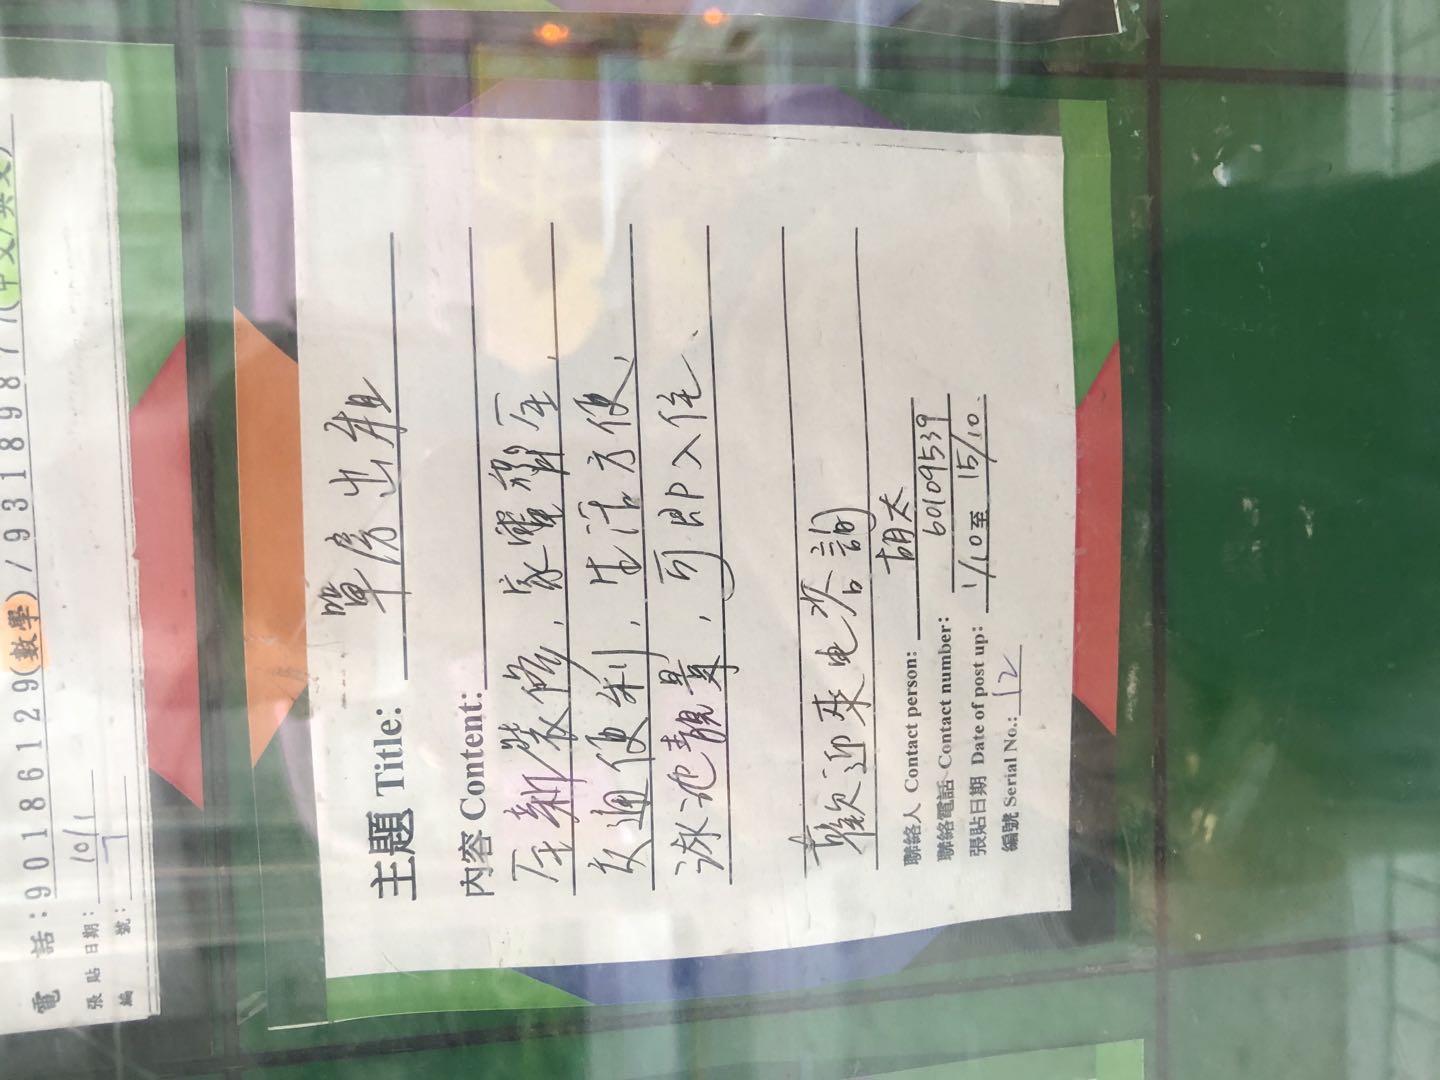 主題 Title: 單房出租
內容 Content:
全新裝修，家電齊全、
交通便利，生活方便、
泳池靚景，可即入住、
歡迎來电咨詢
聯絡人 Contact person: 胡太
聯絡電話 Contact number: 60109539
張貼日期 Date of post up: 1/10至 15/10.
編號 Serial No.: 12
電 話:90186129(數學)/93189877(中文/英文)
張貼日期: 10/1
編 號: 7